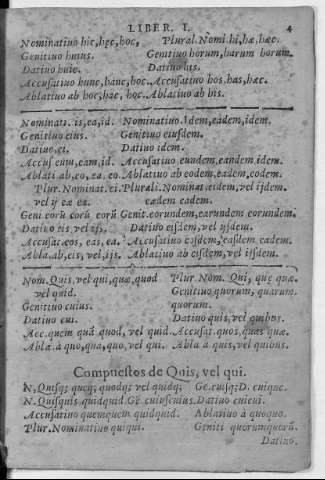 LIBER. I. 4
Nominatiuo hic, hęc, hoc, Plural. Nomi. hi, hæ, hæc.
Genitiuo huius. Genitiuo horum, harum horum.
Datiuo huic. Datiuo his.
Accusatiuo hunc, hanc, hoc. Accusatiuo hos, has, hæc.
Ablatiuo ab hoc, hac, hoc. Ablatiuo ab his.
Nominati. is, ea, id. Nominatiuo Idem, eadem, idem.
Genitiuo eius. Genitiuo eiusdem.
Datiuo. ei. Datiuo idem.
Accus eum, eam, id. Accusatiuo eundem, eandem idem.
Ablati ab, eo, ea eo. Ablatiuo ab eodem, eadem, eodem.
Plur. Nominat. ei. Plurali. Nominat eidem, vel ijdem.
vel ij eæ ea. eædem eadem.
Geni eorū earū eorū Genit. eorundem, earundem eorundem.
Datiuo eis vel ijs. Datiuo eisdem, vel ijsdem.
Accusat. eos, eas, ea. Accusatiuo eosdem, easdem eadem.
Abla. ab, eis, vel, ijs. Ablatiuo ab eisdem, vel ijsdem.
Nom. Quis, vel qui, quæ, quod Plur. Nom. Qui, quę quæ.
vel quid. Genitiuo quorum, quarum
Genitiuo cuius. quorum.
Datiuo cui. Datiuo quis, vel quibus.
Acc. quem quā quod, vel quid. Accusat. quos, quas quæ.
Abla. à quo, qua, quo, vel qui. Abla à quis, vel quibus.
Compuestos de Quis, vel qui.
N. Quisq; quęq; quodq; vel quidq; Ge. cuiusq; D. cuiquc.
N. Quisquis quidquid. Ge. cuiuscuius. Datiuo cuicui.
Accusatiuo quemquem quidquid. Ablatiuo à quoquo.
Plur. Nominatiuo quiqui. Geniti quorumquorū.
Datiuo.